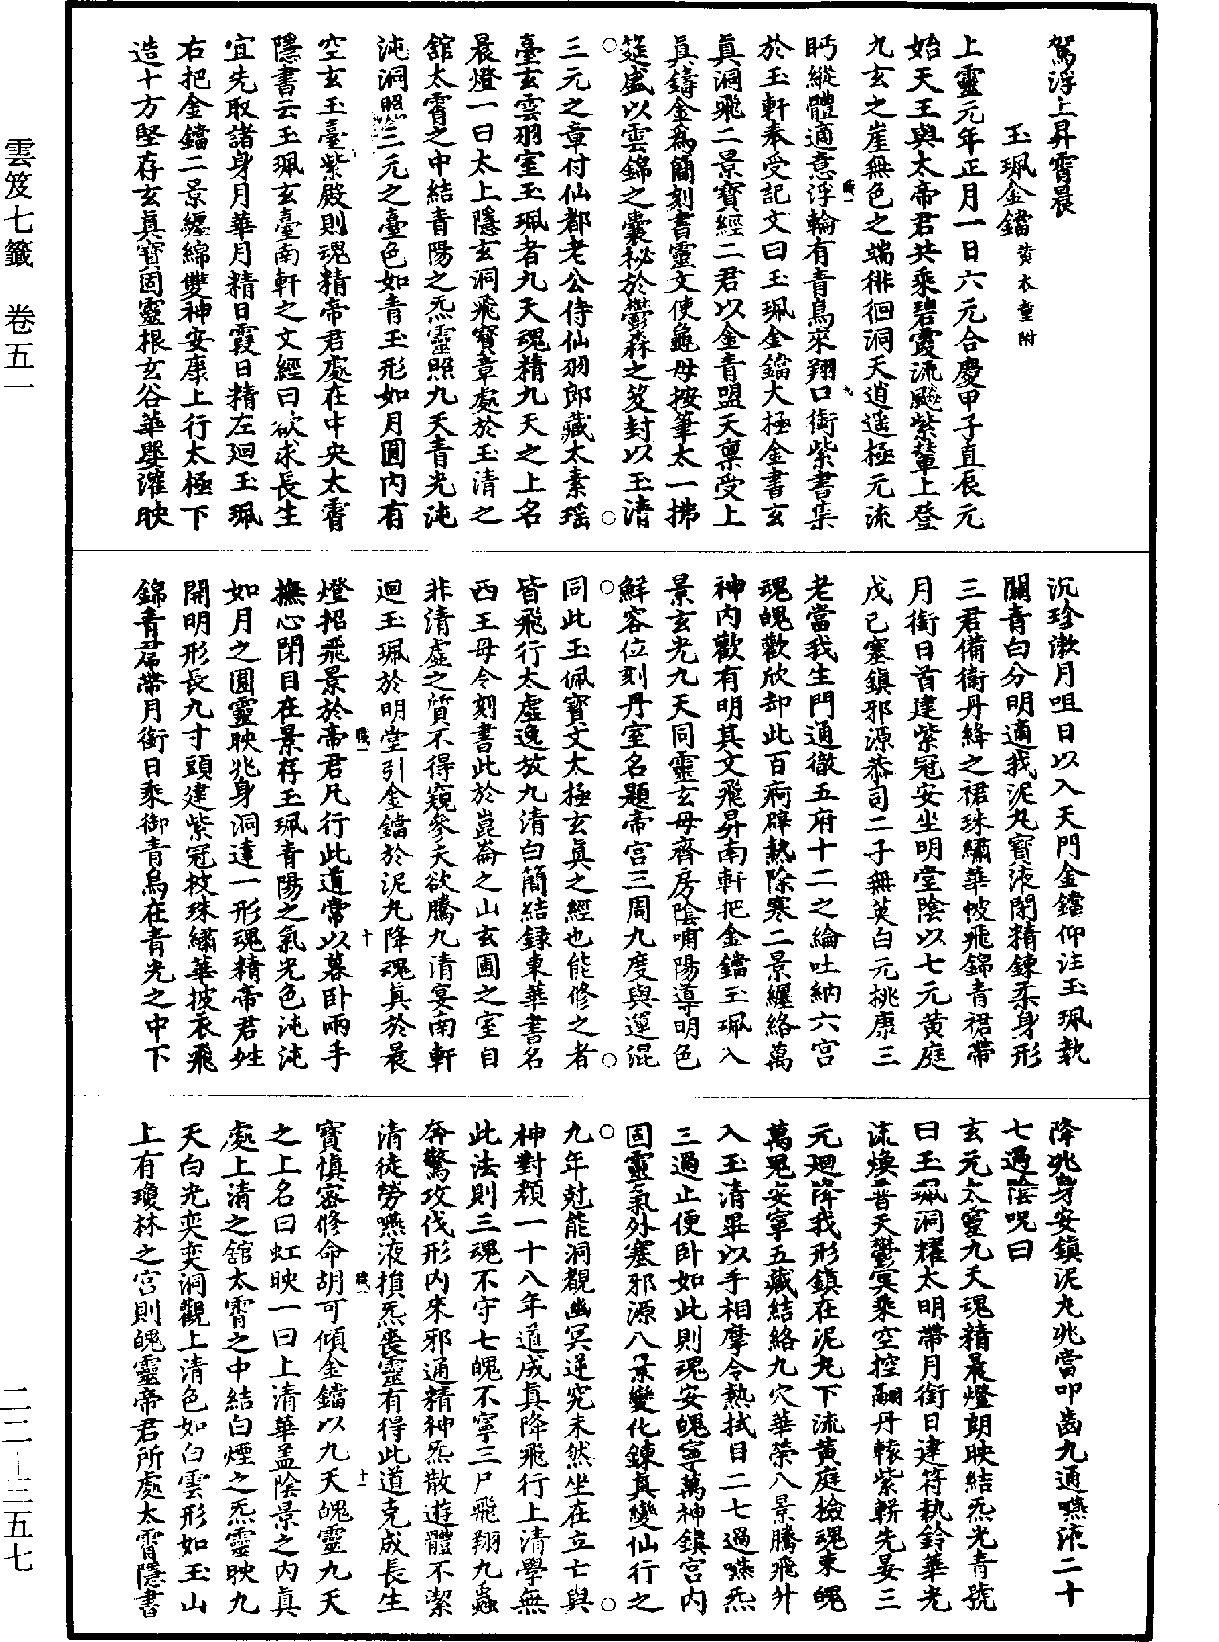 駕浮上昇霄晨
玉珮金鐺黃衣童附
上靈元年正月一日六元合慶甲子直辰元
始天王與太帝君共乘碧霞流飈紫輦上登
九玄之崖無色之端徘徊洞天逍遥極元流
眄縱體適意浮輪有青鳥來翔口銜紫書集
於玉軒奉受記文曰玉珮金鐺大極金書玄
真洞飛二景寶經二君以金青盟天禀受上
真鑄金為簡刻書靈文使龜母按筆太一拂
筵盛以雲錦之囊秘於鬱森之笈封以玉清
三元之章付仙都老公侍仙羽郎藏太素瑶
臺玄雲羽室玉珮者九天魂精九天之上名
晨燈一曰太上隱玄洞飛寶章處於玉清之
舘太霄之中結青陽之炁靈照九天青光沌
沌洞照三元之臺色如青玉形如月圓内有
空玄玉臺紫殿則魂精帝君處在中央太霄
隱書云玉珮玄臺南軒之文經曰欲求長生
宜先取諸身月華月精日霞日精左迴玉珮
右把金鐺二景纏綿雙神安康上行太極下
造十方堅存玄真寳固靈根玄谷華嬰灌映
沉珍漱月咀日以入天門金鐺仰注玉珮執
關青白分明適我泥丸寶液閉精鍊柔身形
三君備衛丹絳之裙珠繡華帔飛錦青裙帶
月銜日首建紫冠安坐明堂陰以七元黄庭
戊己塞鎮邪源恭司二子無英白元桃康三
老當我生門通徹五府十二之綸吐納六宮
魂魄歡欣却此百痾辟熱除寒二景纏絡萬
神内歡有明其文飛昇南軒把金鐺玉珮入
景玄光九天同靈玄母齊房陰哺陽導明色
鮮容位刻丹室名題帝宫三周九度與運混
同此玉佩寶文太極玄真之經也能修之者
皆飛行太虚逸放九清白簡結録東華書名
西王母令刻書此於崑崙之山玄圃之室自
非清虚之質不得窺參夫欲騰九清宴南軒
迴玉珮於明堂引金鐺於泥丸降魂真於晨
燈招飛景於帝君凡行此道常以暮卧兩手
撫心閉目在景存玉珮青陽之氣光色沌沌
如月之圓靈映兆身洞達一形魂精帝君姓
開明形長九寸頭建紫冠被珠繡華披衣飛
錦青裙帶月銜日乘御青鳥在青光之中下
降兆身安鎮泥丸兆當叩齒九通嚥液二十
七過陰呪曰
玄元太靈九天魂精晨燈朗映結炁光青號
曰玉珮洞耀太明帶月銜日建符執鈴華光
流煥普天鬱冥乘空控翮丹轅紫軿先晏三
元迴降我形鎮在泥丸下流黄庭檢魂束魄
萬鬼安寧五藏結絡九穴華榮八景騰飛升
入玉清畢以手相摩令熱拭目二七過嚥炁
三過止便卧如此則魂安魄寧萬神鎮宫内
固靈氣外塞邪源八景變化鍊真變仙行之
九年尅能洞觀幽冥逆究未然坐在立亡與
神對顏一十八年道成真降飛行上清學無
此法則三魂不守七魄不寧三尸飛翔九蟲
奔驚攻伐形内來邪通精神炁散遊體不潔
清徒勞嚥液損炁喪靈有得此道克成長生
寳慎密修命胡可傾金鐺以九天魄靈九天
之上名曰虹映一曰上清華盖陰景之内真
處上清之舘太霄之中結白煙之炁靈映九
天白光奕奕洞觀上清色如白雲形如玉山
上有瓊林之宮則魄靈帝君所處太霄隱書
雲笈七籤 卷五一
二二—三五七